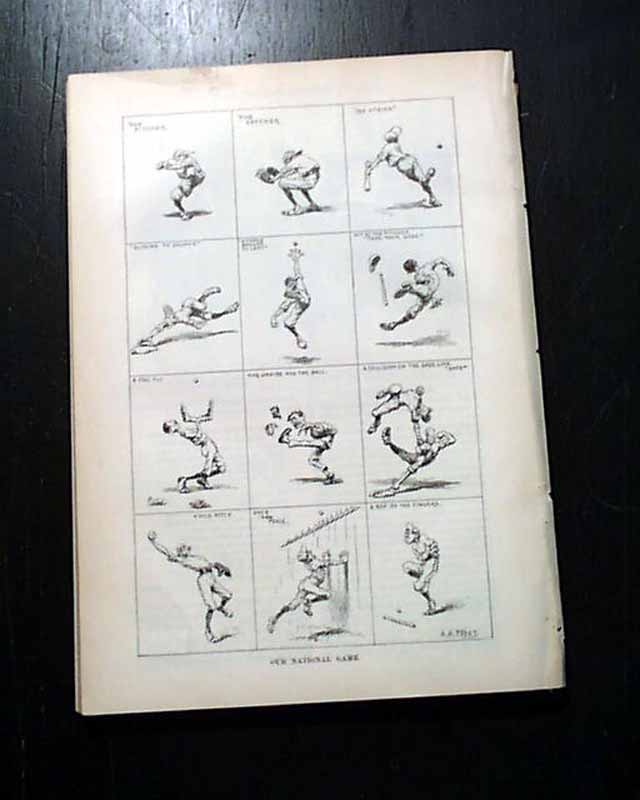 THE
PITCHER.
THE
CATCHER.
"NO STRIKE"
"SLIDING TO SECOND"
DOUBLE
"TAKE YOUR BASE"
A FOUL FLY
THE UMPIRE AND THE BALL.
A COLLISION ON THE BASE LINE.
"SAFE"
A WILD PITCH
OVER
THE
FENCE.
A RAP ON THE FINGERS.
OUR NATIONAL GAME